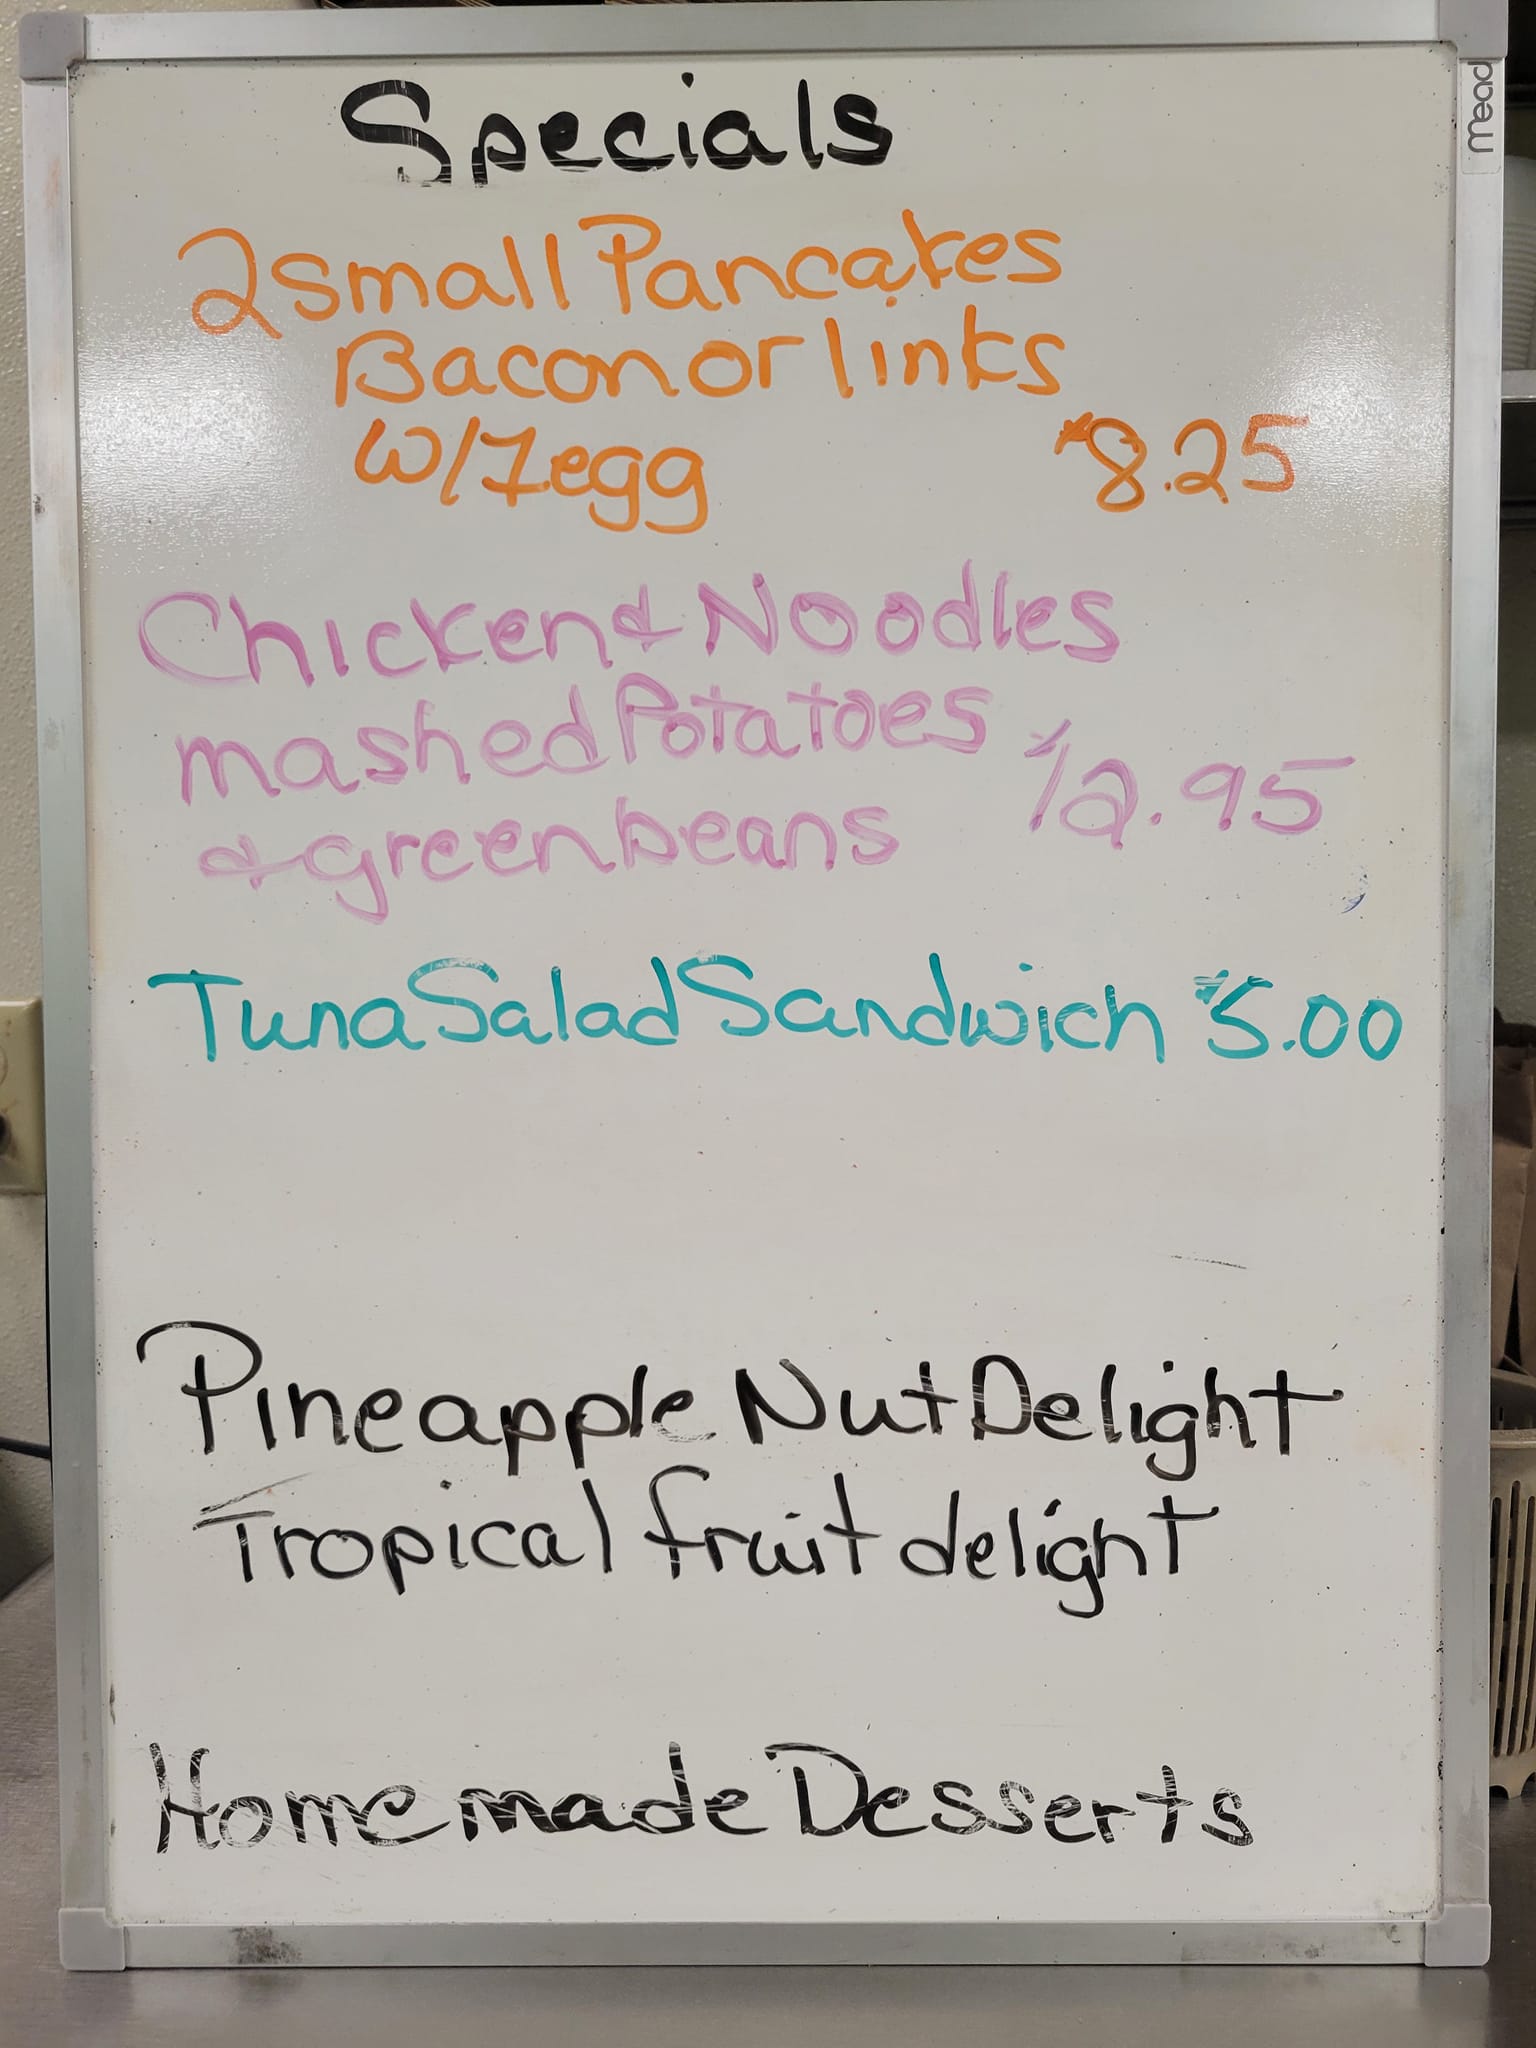 mead
Specials
2 small Pancakes
Bacon or links
w/1 egg $8.25
Chicken & Noodles
mashed Potatoes
& green beans $12.95
Tuna Salad Sandwich $5.00
Pineapple Nut Delight
Tropical fruit delight
Homemade Desserts